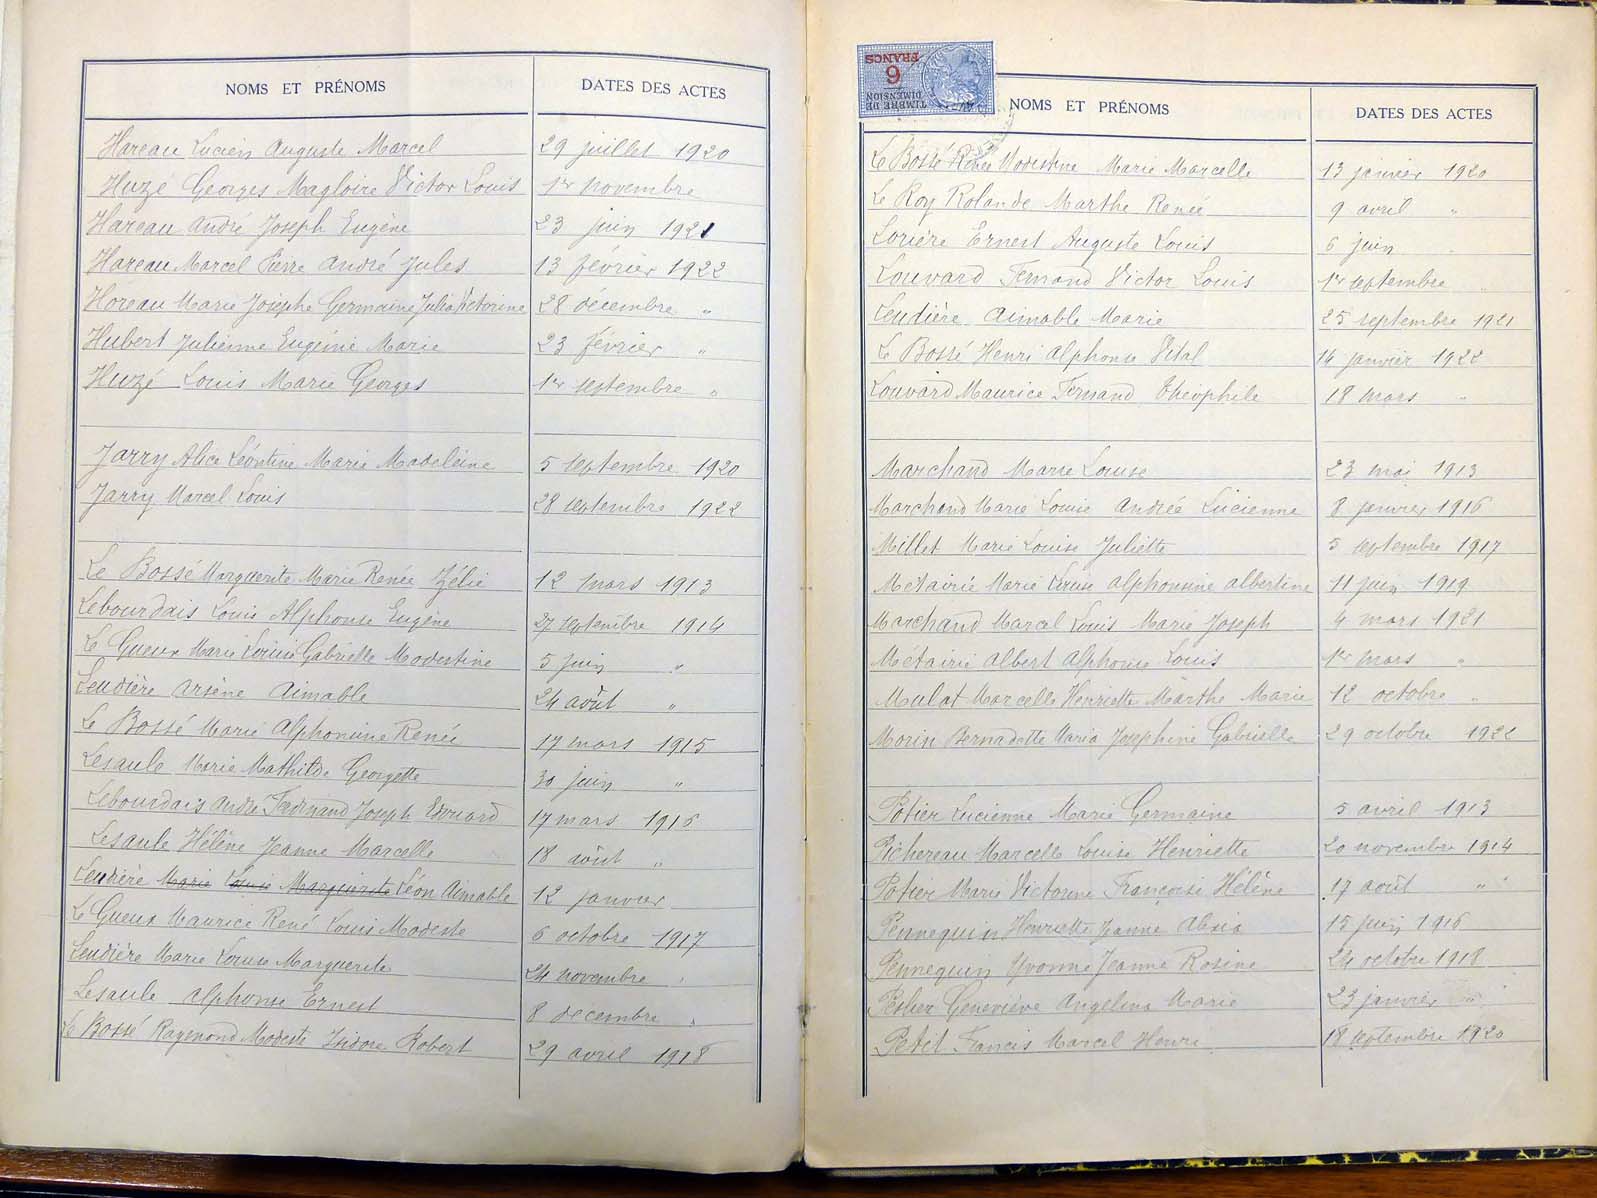 NOMS ET PRÉNOMS DATES DES ACTES
Hareau Lucien Auguste Marcel 29 juillet 1920
Huzé Georges Magloire Victor Louis 1er novembre
Hareau André Joseph Eugène 23 juin 1921
Hareau Marcel Pierre André Jules 13 février 1922
Horeau Marie Josèphe Germaine Julia Victorine 28 décembre "
Hubert Julienne Eugénie Marie 23 février "
Huzé Louis Marie Georges 1er septembre "
Jarry Alice Léontine Marie Madeleine 5 septembre 1920
Jarry Marcel Louis 28 septembre 1922
Le Bossé Marguerite Marie Renée Zélie 12 mars 1913
Lebourdais Louis Alphonse Eugène 27 septembre 1914
Le Gueux Marie Louise Gabrielle Modestine 5 juin "
Leudière Arsène Aimable 24 août "
Le Bossé Marie Alphonsine Renée 17 mars 1915
Lesaule Marie Mathilde Georgette 30 juin "
Lebourdais André Ferdinand Joseph Edouard 17 mars 1916
Lesaule Hélène Jeanne Marcelle 18 août "
Leudière Marie Louise Marguerite Léon Aimable 12 janvier
Le Gueux Maurice René Louis Modeste 6 octobre 1917
Leudière Marie Louise Marguerite 24 novembre "
Lesaule Alphonse Ernest 8 décembre "
Le Bossé Raymond Modeste Isidore Robert 29 avril 1918
TIMBRE DE
DIMENSION
6
FRANCS
NOMS ET PRÉNOMS DATES DES ACTES
Le Bossé Renée Modestine Marie Marcelle 13 janvier 1920
Le Roy Rolande Marthe Renée 9 avril "
Lorière Ernest Auguste Louis 6 juin "
Louvard Fernand Victor Louis 1er septembre "
Leudière Aimable Marie 25 septembre 1921
Le Bossé Henri Alphonse Vital 14 janvier 1922
Louvard Maurice Fernand Théophile 18 mars "
Marchand Marie Louise 23 mai 1913
Marchand Marie Louise Andrée Lucienne 8 janvier 1916
Millet Marie Louise Juliette 5 septembre 1917
Métairie Marie Louise Alphonsine Albertine 11 juin 1919
Marchand Marcel Louis Marie Joseph 4 mars 1921
Métairie Albert Alphonse Louis 1er mars "
Mulot Marcelle Henriette Marthe Marie 12 octobre "
Morin Bernadette Maria Joséphine Gabrielle 29 octobre 1922
Potier Lucienne Marie Germaine 5 avril 1913
Pichereau Marcelle Louise Henriette 20 novembre 1914
Potier Marie Victorine Françoise Hélène 17 août "
Pennequin Henriette Jeanne Alexia 15 juin 1916
Pennequin Yvonne Jeanne Rosine 24 octobre 1918
Geneviève Angelina Marie 23 janvier "
Petit Francis Marcel Henri 18 septembre 1920